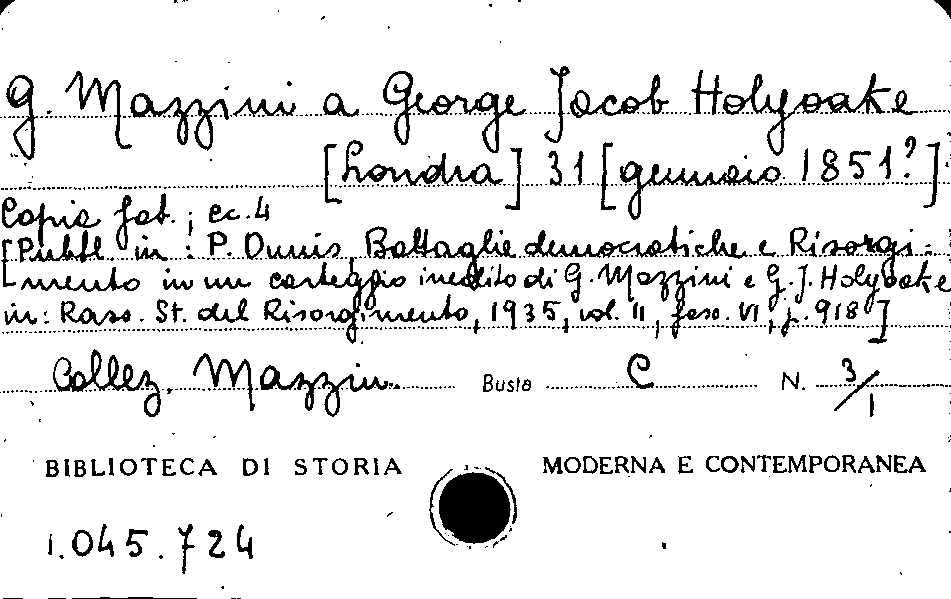 G. Mazzini a George Jacob Holyoake
[Londra] 31 [gennaio 1851?]
Copia fot.; cc. 4
[Pubbl. in: P. Dunis, Battaglie democratiche e Risorgi-
mento in un carteggio inedito di G. Mazzini e G. J. Holyoake
in: Rass. St. del Risorgimento, 1935, vol. II, fasc. VI, p. 918]
Collez. Mazzini Busta C N. 3/1
BIBLIOTECA DI STORIA MODERNA E CONTEMPORANEA
1.045.724